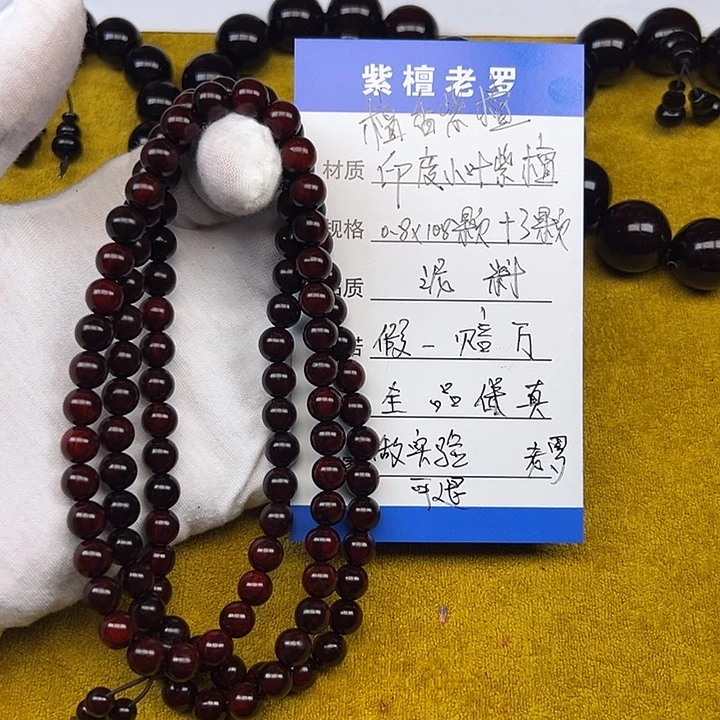 紫檀老罗
檀香紫檀
材质 印度小叶紫檀
规格 0.8×108颗+3颗
品质 泥料
假一赔万
全品保真
做实验 老罗
可退